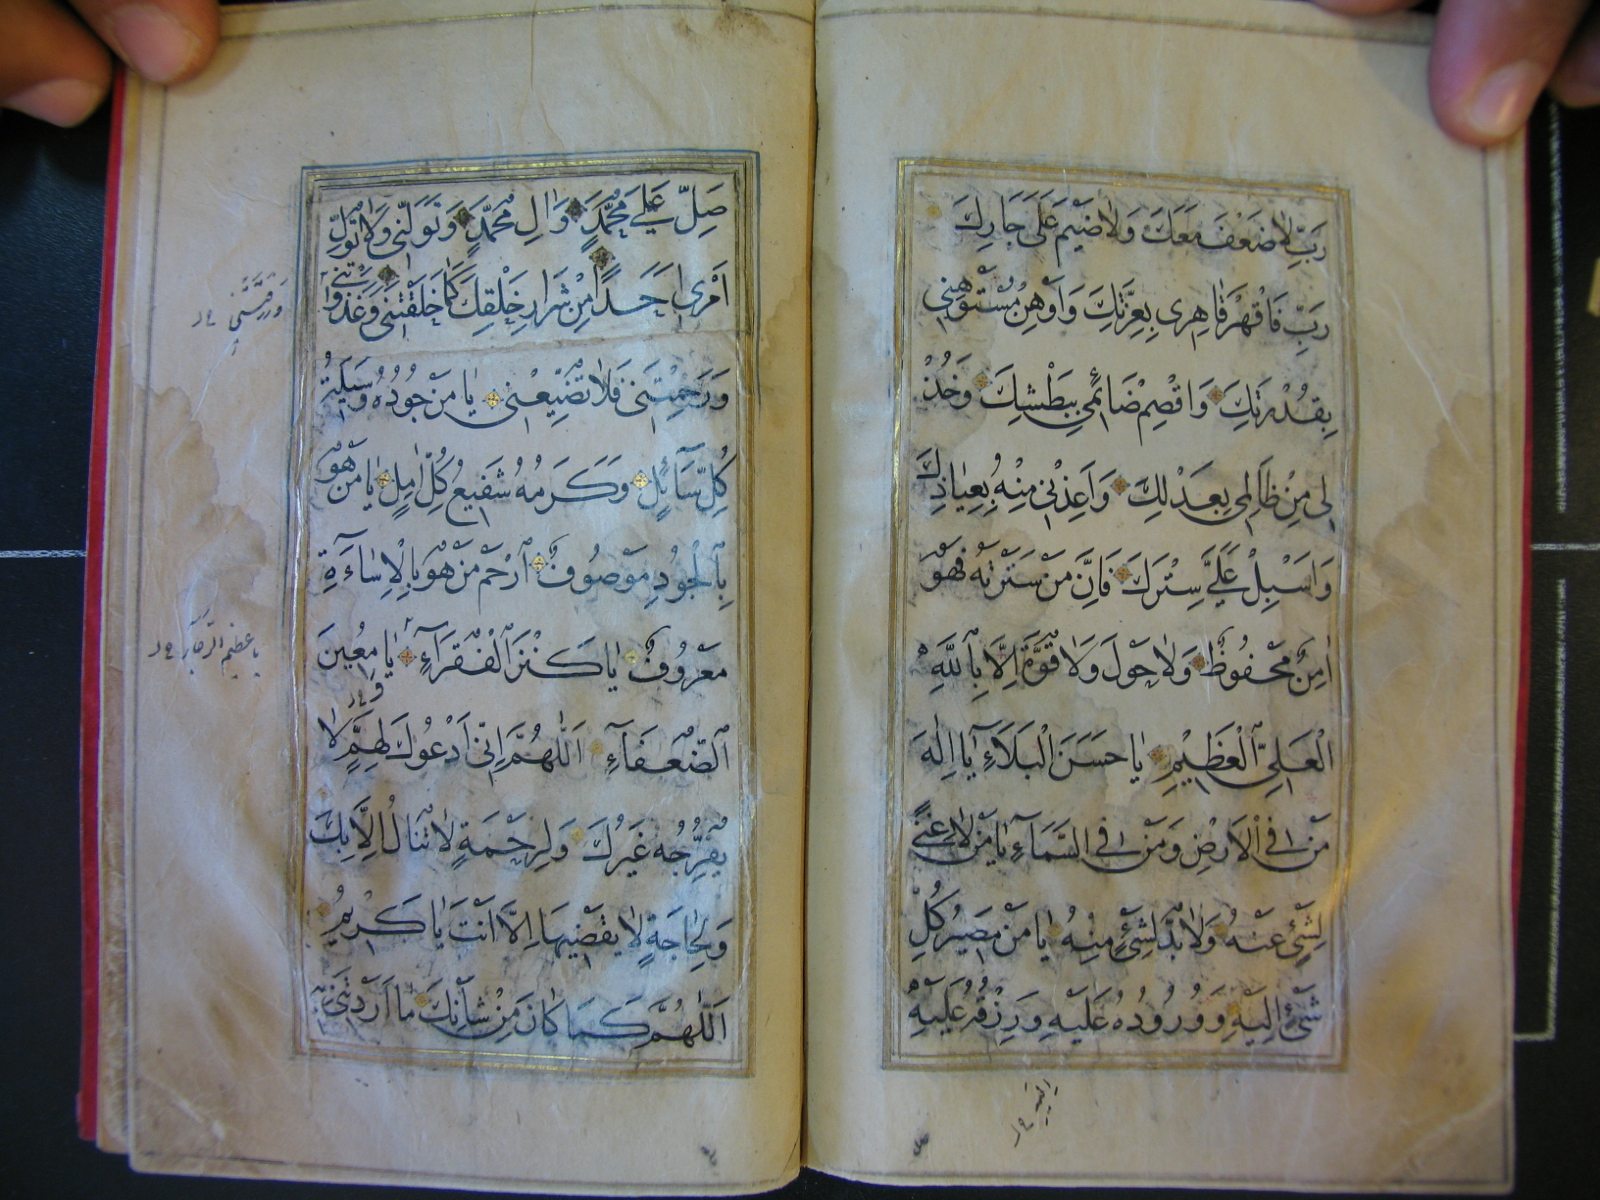 رَبِّ لٰا ضَعْفَ مَعَكَ وَلٰا ضَيْمَ عَلٰى جَارِكَ
رَبِّ فَاقْهَرْ قٰاهِرِى بِعِزَّتِكَ وَاَوْهِنْ مُسْتَوْهِنِى
بِقُدْرَتِكَ وَاقْصِمْ ضَائِمِى بِبَطْشِكَ وَخُذْ
لِى مِنْ ظَالِمِى بِعَدْلِكَ وَاَعِذْنِى مِنْهُ بِعِيٰاذِكَ
وَاَسْبِلْ عَلَىَّ سِتْرَكَ فَاِنَّ مَنْ سَتَرْتَهُ فَهُوَ
اٰمِنٌ مَحْفُوظٌ وَلٰا حَوْلَ وَلٰا قُوَّةَ اِلَّا بِاللّٰهِ
الْعَلِىِّ الْعَظِيْمِ يٰا حَسَنَ الْبَلَاءِ يٰا اِلٰهَ
مَنْ فِى الْاَرْضِ وَمَنْ فِى السَّمَاءِ يٰا مَنْ لٰا غِنٰى
لِشَىْءٍ عَنْهُ وَلٰا بُدَّ لِشَىْءٍ مِنْهُ يٰا مَنْ مَصِيْرُ كُلِّ
شَىْءٍ اِلَيْهِ وَوُرُودُهُ عَلَيْهِ وَرِزْقُهُ عَلَيْهِ
صَلِّ عَلٰى مُحَمَّدٍ وَاٰلِ مُحَمَّدٍ وَتَوَلَّنِى وَلٰا تُوَلِّ
اَمْرِى اَحَدًا مِنْ شِرَارِ خَلْقِكَ كَمَا خَلَقْتَنِى وَغَذَوْتَنِى
وَرَحِمْتَنِى فَلٰا تُضَيِّعْنِى يٰا مَنْ جُودُهُ وَسِيلَةُ
كُلِّ سَآئِلٍ وَكَرَمُهُ شَفِيعُ كُلِّ اٰمِلٍ يٰا مَنْ هُوَ
بِالْجُودِ مَوْصُوفٌ اِرْحَمْ مَنْ هُوَ بِالْاِسٰاءَةِ
مَعْرُوفٌ يٰا كَنْزَ الْفُقَرَآءِ يٰا مُعِينَ
الضُّعَفَآءِ اَللّٰهُمَّ اِنِّى اَدْعُوكَ لِهَمٍّ لٰا
يُفَرِّجُهُ غَيْرُكَ وَلِرَحْمَةٍ لٰا تُنَالُ اِلَّا بِكَ
وَلِحٰاجَةٍ لٰا يَقْضِيهَا اِلَّا اَنْتَ يٰا كَرِيمُ
اَللّٰهُمَّ كَمَا كٰانَ مِنْ شَأْنِكَ مٰا اَرَدْتَنِى
وربيتنى
يا عظيم الرجآء